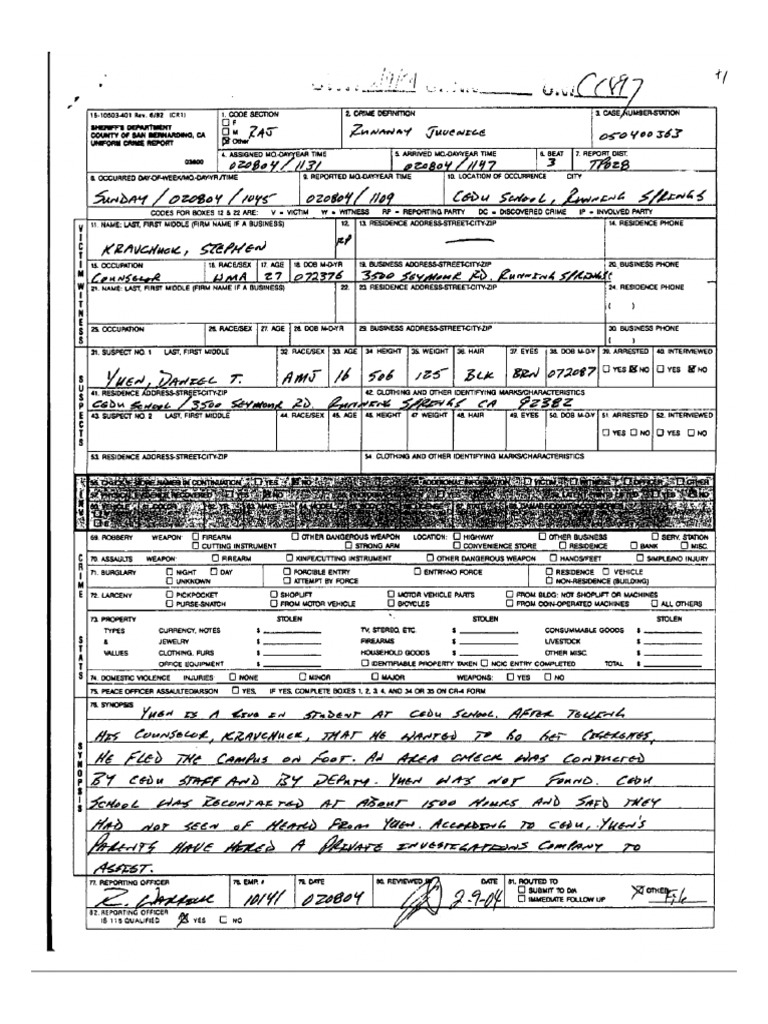 CC1897
15-10603-401 Rev. 6/92 (CR1)
SHERIFF'S DEPARTMENT
COUNTY OF SAN BERNARDINO, CA
UNIFORM CRIME REPORT
03600
1. CODE SECTION
☐ F
☐ M
☒ Other
2. CRIME DEFINITION
RUNAWAY JUVENILE
3. CASE NUMBER-STATION
050400363
4. ASSIGNED MO./DAY/YEAR TIME
020804/1131
5. ARRIVED MO./DAY/YEAR TIME
020804/1147
6. BEAT
3
7. REPORT DIST.
8. OCCURRED DAY-OF-WEEK/MO./DAY/YR./TIME
SUNDAY/020804/1045
9. REPORTED MO./DAY/YEAR TIME
020804/1109
10. LOCATION OF OCCURRENCE CITY
CEDU SCHOOL, RUNNING SPRINGS
CODES FOR BOXES 12 & 22 ARE: V = VICTIM W = WITNESS RP = REPORTING PARTY DC = DISCOVERED CRIME IP = INVOLVED PARTY
VICTIM WITNESS
11. NAME: LAST, FIRST MIDDLE (FIRM NAME IF A BUSINESS)
KRAVCHUCK, STEPHEN
12.
RP
13. RESIDENCE ADDRESS-STREET-CITY-ZIP
—
14. RESIDENCE PHONE
15. OCCUPATION
COUNSELOR
16. RACE/SEX
WMA
17. AGE
27
18. DOB M-D-YR
072376
19. BUSINESS ADDRESS-STREET-CITY-ZIP
3500 SEYMOUR RD, RUNNING SPRINGS
20. BUSINESS PHONE
21. NAME: LAST, FIRST MIDDLE (FIRM NAME IF A BUSINESS)
22.
23. RESIDENCE ADDRESS-STREET-CITY-ZIP
24. RESIDENCE PHONE
( )
25. OCCUPATION
26. RACE/SEX
27. AGE
28. DOB M-D-YR
29. BUSINESS ADDRESS-STREET-CITY-ZIP
30. BUSINESS PHONE
( )
SUSPECTS
31. SUSPECT NO. 1 LAST, FIRST MIDDLE
YUEN, DANIEL T.
32. RACE/SEX
AMJ
33. AGE
16
34. HEIGHT
506
35. WEIGHT
125
36. HAIR
BLK
37. EYES
BRN
38. DOB M-D-Y
072087
39. ARRESTED
☐ YES ☒ NO
40. INTERVIEWED
☐ YES ☒ NO
41. RESIDENCE ADDRESS-STREET-CITY-ZIP
42. CLOTHING AND OTHER IDENTIFYING MARKS/CHARACTERISTICS
CEDU SCHOOL / 3500 SEYMOUR RD. RUNNING SPRINGS CA 92382
43. SUSPECT NO. 2 LAST, FIRST MIDDLE
44. RACE/SEX
45. AGE
46. HEIGHT
47. WEIGHT
48. HAIR
49. EYES
50. DOB M-D-Y
51. ARRESTED
☐ YES ☐ NO
52. INTERVIEWED
☐ YES ☐ NO
53. RESIDENCE ADDRESS-STREET-CITY-ZIP
54. CLOTHING AND OTHER IDENTIFYING MARKS/CHARACTERISTICS
CRIME
69. ROBBERY WEAPON ☐ FIREARM ☐ OTHER DANGEROUS WEAPON LOCATION: ☐ HIGHWAY ☐ OTHER BUSINESS ☐ SERV. STATION
☐ CUTTING INSTRUMENT ☐ STRONG ARM ☐ CONVENIENCE STORE ☐ RESIDENCE ☐ BANK ☐ MISC.
70. ASSAULTS WEAPON: ☐ FIREARM ☐ KNIFE/CUTTING INSTRUMENT ☐ OTHER DANGEROUS WEAPON ☐ HANDS/FEET ☐ SIMPLE/NO INJURY
71. BURGLARY ☐ NIGHT ☐ DAY ☐ FORCIBLE ENTRY ☐ ENTRY-NO FORCE ☐ RESIDENCE ☐ VEHICLE
☐ UNKNOWN ☐ ATTEMPT BY FORCE ☐ NON-RESIDENCE (BUILDING)
72. LARCENY ☐ PICKPOCKET ☐ SHOPLIFT ☐ MOTOR VEHICLE PARTS ☐ FROM BLDG: NOT SHOPLIFT OR MACHINES
☐ PURSE-SNATCH ☐ FROM MOTOR VEHICLE ☐ BICYCLES ☐ FROM COIN-OPERATED MACHINES ☐ ALL OTHERS
STATS
73. PROPERTY STOLEN STOLEN STOLEN
TYPES CURRENCY, NOTES $ TV, STEREO, ETC. $ CONSUMMABLE GOODS $
& JEWELRY $ FIREARMS $ LIVESTOCK $
VALUES CLOTHING, FURS $ HOUSEHOLD GOODS $ OTHER MISC $
OFFICE EQUIPMENT $ ☐ IDENTIFIABLE PROPERTY TAKEN ☐ NCIC ENTRY COMPLETED TOTAL $
74. DOMESTIC VIOLENCE INJURIES ☐ NONE ☐ MINOR ☐ MAJOR WEAPONS: ☐ YES ☐ NO
75. PEACE OFFICER ASSAULTED/ARSON ☐ YES, IF YES, COMPLETE BOXES 1, 2, 3, 4, AND 34 OR 35 ON CR-4 FORM
SYNOPSIS
76. SYNOPSIS
YUEN IS A LIVE IN STUDENT AT CEDU SCHOOL. AFTER TELLING
HIS COUNSELOR, KRAVCHUCK, THAT HE WANTED TO GO GET CIGERETTES,
HE FLED THE CAMPUS ON FOOT. AN AREA CHECK WAS CONDUCTED
BY CEDU STAFF AND BY DEPUTY. YUEN WAS NOT FOUND. CEDU
SCHOOL WAS RECONTACTED AT ABOUT 1500 HOURS AND SAID THEY
HAD NOT SEEN OF HEARD FROM YUEN. ACCORDING TO CEDU, YUEN'S
PARENTS HAVE HIRED A PRIVATE INVESTIGATIONS COMPANY TO
ASSIST.
77. REPORTING OFFICER
78. EMP. #
10141
79. DATE
020804
80. REVIEWED BY DATE
2-9-04
81. ROUTED TO
☐ SUBMIT TO DA
☐ IMMEDIATE FOLLOW UP
☒ OTHER
File
82. REPORTING OFFICER
IS 115 QUALIFIED ☒ YES ☐ NO